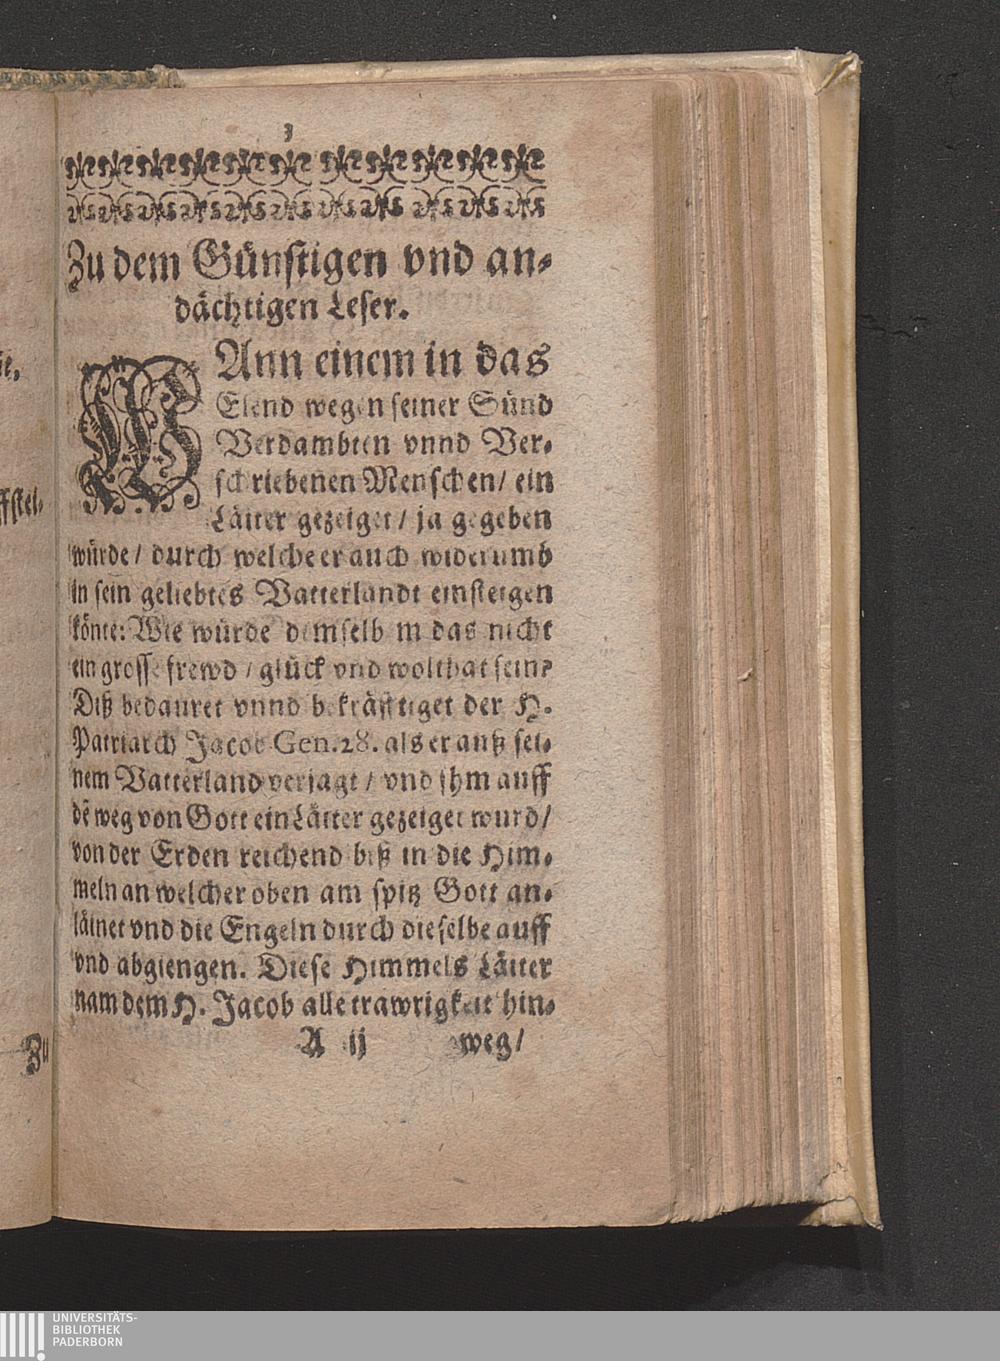 3
Zu dem Günstigen vnd an-
dächtigen Leser.
WAnn einem in das
Elend wegen seiner Sünd
Verdambten vnnd Ver-
schriebenen Menschen/ ein
Lätter gezeiget/ ja gegeben
würde/ durch welche er auch widerumb
in sein geliebtes Vatterlandt einsteigen
könte: Wie würde demselben das nicht
ein grosse frewd/ glück vnd wolthat sein?
Diß bedauret vnnd bekräfftiget der H.
Patriarch Jacob Gen. 28. als er auß sei-
nem Vatterland verjagt/ vnd jhm auff
dē weg von Gott ein Lätter gezeiget wurd/
von der Erden reichend biß in die Him-
meln an welcher oben am spitz Gott an-
läinet vnd die Engeln durch dieselbe auff
vnd abgiengen. Diese Himmels Lätter
nam dem H. Jacob alle trawrigkeit hin-
A ij weg/
ffstel-
Zu
UNIVERSITÄTS-
BIBLIOTHEK
PADERBORN